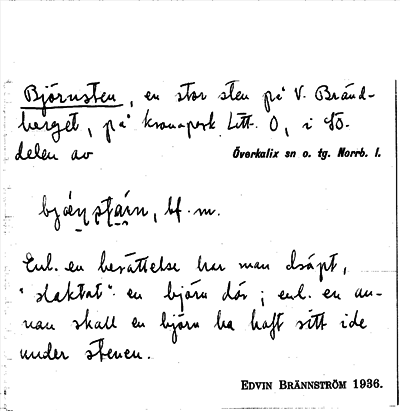 Björnsten, en stor sten på V. Bränd-
berget, på kronopark Litt. O, i SO.
delen av Överkalix sn o. tg. Norrb. l.
bf. m.
Enl. en berättelse har man dräpt,
"slaktat" en björn där; enl. en an-
nan skall en björn ha haft sitt ide
under stenen.
EDVIN BRÄNNSTRÖM 1936.